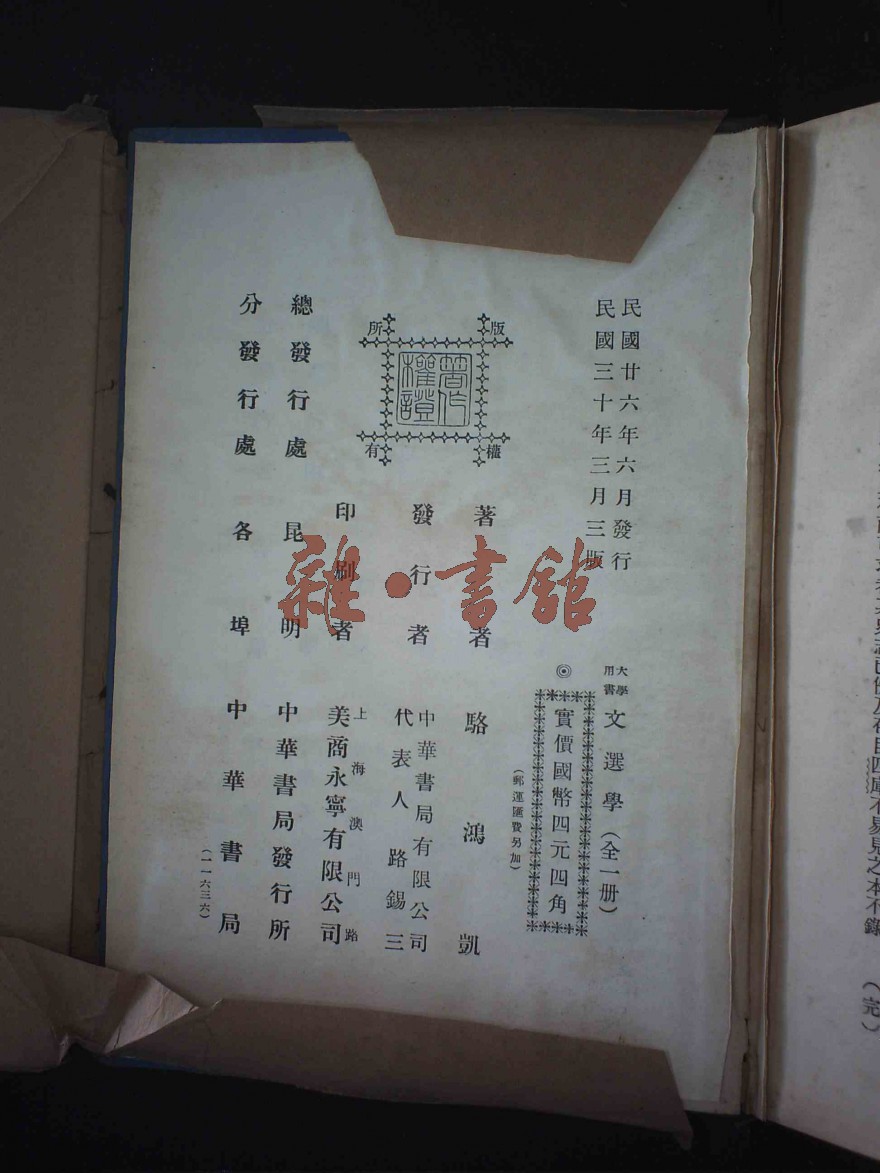 民國廿六年六月發行
民國三十年三月三版
大學用書 文選學（全一册）
◎實價國幣四元四角
（郵運匯費另加）
版權所有
著作權證
著者 駱鴻凱
發行者 中華書局有限公司
代表人 路錫三
印刷者 上海澳門路
美商永寧有限公司
總發行處 昆明 中華書局發行所
分發行處 各埠 中華書局
（一一六三六）
雜·書館
（完）